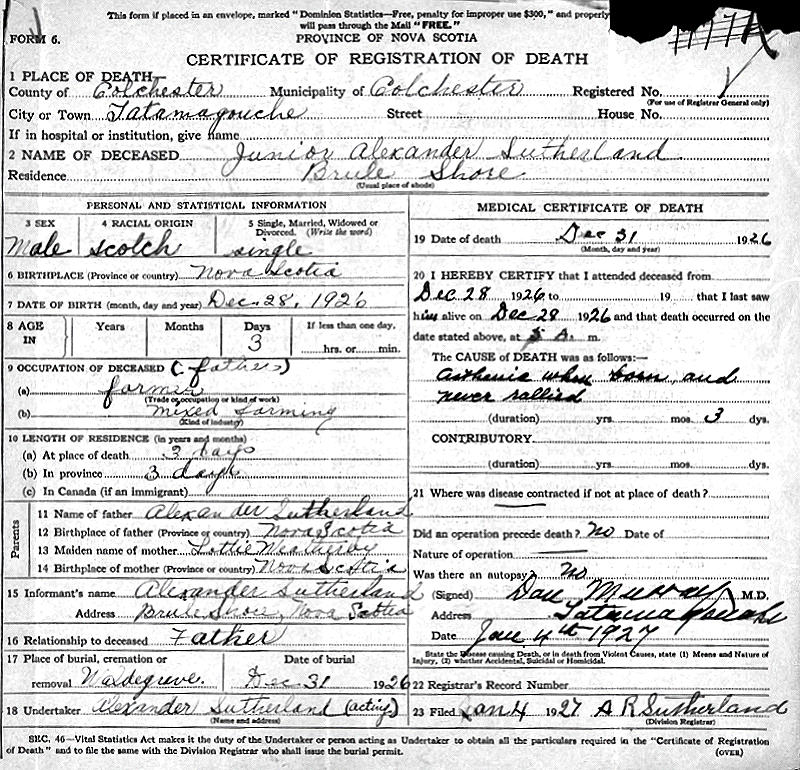 This form if placed in an envelope, marked "Dominion Statistics—Free, penalty for improper use $300," and properly
will pass through the Mail "FREE."
FORM 6.
PROVINCE OF NOVA SCOTIA
CERTIFICATE OF REGISTRATION OF DEATH
1 PLACE OF DEATH—
County of Colchester Municipality of Colchester Registered No.
(For use of Registrar General only)
City or Town Tatamagouche Street House No.
If in hospital or institution, give name
2 NAME OF DECEASED Junior Alexander Sutherland
Residence Brule Shore
(Usual place of abode)
PERSONAL AND STATISTICAL INFORMATION
3 SEX 4 RACIAL ORIGIN 5 Single, Married, Widowed or
Divorced. (Write the word)
Male scotch single
6 BIRTHPLACE (Province or country) Nova Scotia
7 DATE OF BIRTH (month, day and year) Dec. 28, 1926
8 AGE IN Years Months Days If less than one day,
3 hrs. or min.
9 OCCUPATION OF DECEASED (fathers)
(a) farmer
(Trade or occupation or kind of work)
(b) mixed farming
(Kind of industry)
10 LENGTH OF RESIDENCE (in years and months)
(a) At place of death 3 days
(b) In province 3 days
(c) In Canada (if an immigrant)
Parents
11 Name of father Alexander Sutherland
12 Birthplace of father (Province or country) Nova Scotia
13 Maiden name of mother Lottie Weatherby
14 Birthplace of mother (Province or country) Nova Scotia
15 Informant's name Alexander Sutherland
Address Brule Shore, Nova Scotia
16 Relationship to deceased Father
17 Place of burial, cremation or Date of burial
removal Waldegrave. Dec 31 1926
18 Undertaker Alexander Sutherland (acting)
(Name and address)
MEDICAL CERTIFICATE OF DEATH
19 Date of death Dec 31 1926
(Month, day and year)
20 I HEREBY CERTIFY that I attended deceased from
Dec 28 1926 to 19 that I last saw
him alive on Dec 28 1926 and that death occurred on the
date stated above, at 5 A. m.
The CAUSE of DEATH was as follows:—
Asthenic when born and
never rallied
(duration) yrs. mos. 3 dys.
CONTRIBUTORY
(duration) yrs. mos. dys.
21 Where was disease contracted if not at place of death?
Did an operation precede death? No Date of
Nature of operation
Was there an autopsy? No.
(Signed) Dan Murray M.D.
Address Tatamagouche
Date Jan 4th 1927
State the Disease causing Death, or in death from Violent Causes, state (1) Means and Nature of
Injury, (2) whether Accidental, Suicidal or Homicidal.
22 Registrar's Record Number
23 Filed Jan 4 1927 A R Sutherland
(Division Registrar)
SEC. 46—Vital Statistics Act makes it the duty of the Undertaker or person acting as Undertaker to obtain all the particulars required in the "Certificate of Registration
of Death" and to file the same with the Division Registrar who shall issue the burial permit.
(OVER)